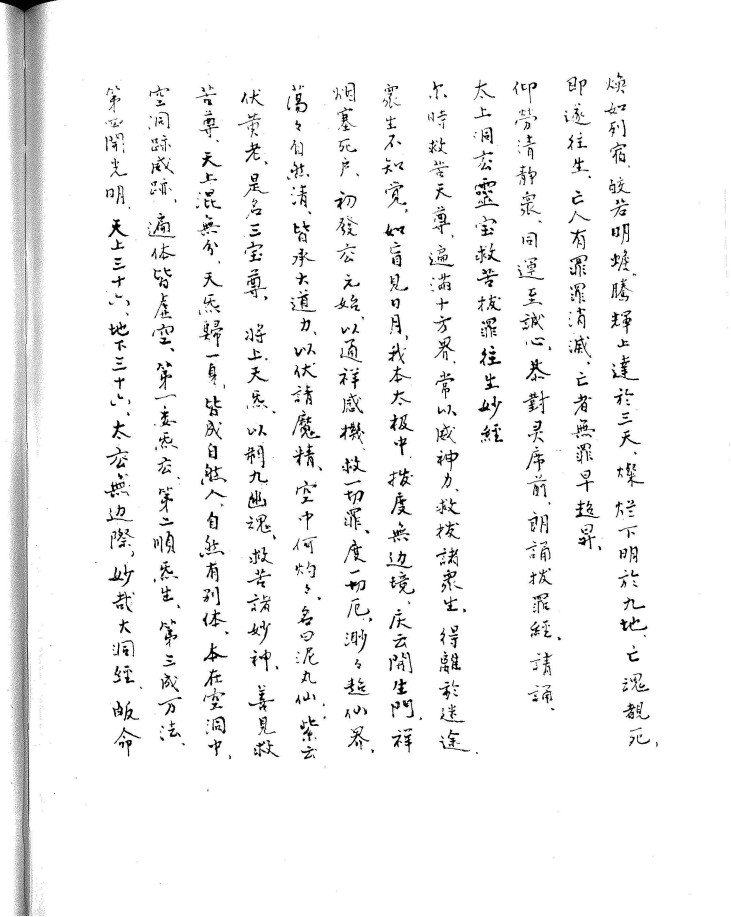 焕如列宿、皎若明蟾、騰輝上達於三天、燦烂下明於九地、亡魂覩死、
即遂往生、亡人有罪罪消滅、亡者無罪早超昇、
仰劳清静衆、同運至誠心、恭對灵席前、朗誦拔罪經、請誦、
太上洞玄靈宝救苦拔罪往生妙經
尒時救苦天尊、遍滿十方界、常以威神力、救拔諸衆生、得離於迷途、
衆生不知覚、如盲見日月、我本太极中、拔度無边境、庆云開生門、祥
烟塞死户、初發玄元始、以通祥感機、救一切罪、度一切厄、渺々超仙界、
蕩々自然清、皆承大道力、以伏諸魔精、空中何灼々、名曰泥丸仙、紫云
伏黄老、是名三宝尊、将上天炁、以制九幽魂、救苦諸妙神、善見救
苦尊、天上混無分、天炁歸一身、皆成自然人、自然有别体、本在空洞中、
空洞跡威跡、遍体皆虚空、第一委炁玄、第二順炁生、第三成万法、
第四開光明、天上三十六、地下三十六、太玄無边際、妙哉大洞經、皈命